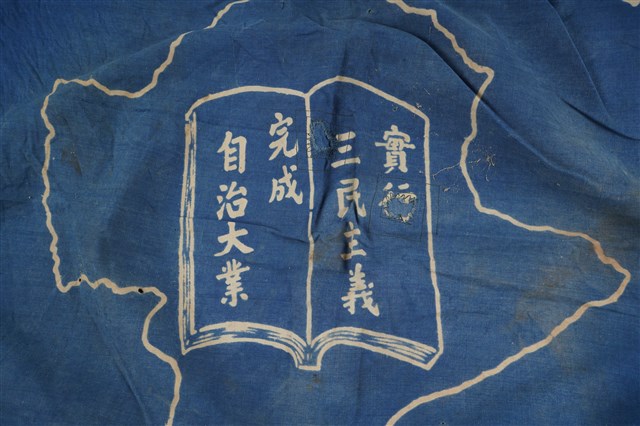 實行
三民主義
完成
自治大業